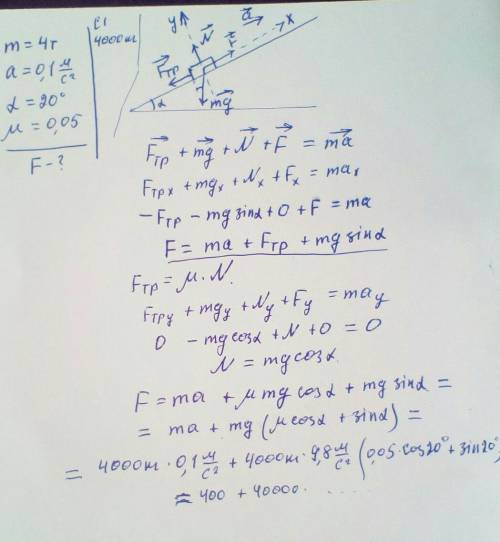 m = 4т
a = 0,1 м/с²
α = 20°
μ = 0,05
F - ?
СИ
4000кг
y
N
F
a
x
Fтр
α
mg
Fтр + mg + N + F = ma
Fтрx + mgx + Nx + Fx = max
-Fтр - mg sinα + 0 + F = ma
F = ma + Fтр + mg sinα
Fтр = μ·N.
Fтрy + mgy + Ny + Fy = may
0 - mg cosα + N + 0 = 0
N = mg cosα
F = ma + μ mg cosα + mg sinα =
= ma + mg (μ cosα + sinα) =
= 4000кг · 0,1 м/с² + 4000кг · 9,8 м/с² (0,05·cos20° + sin20°)
≈ 400 + 40000· .....